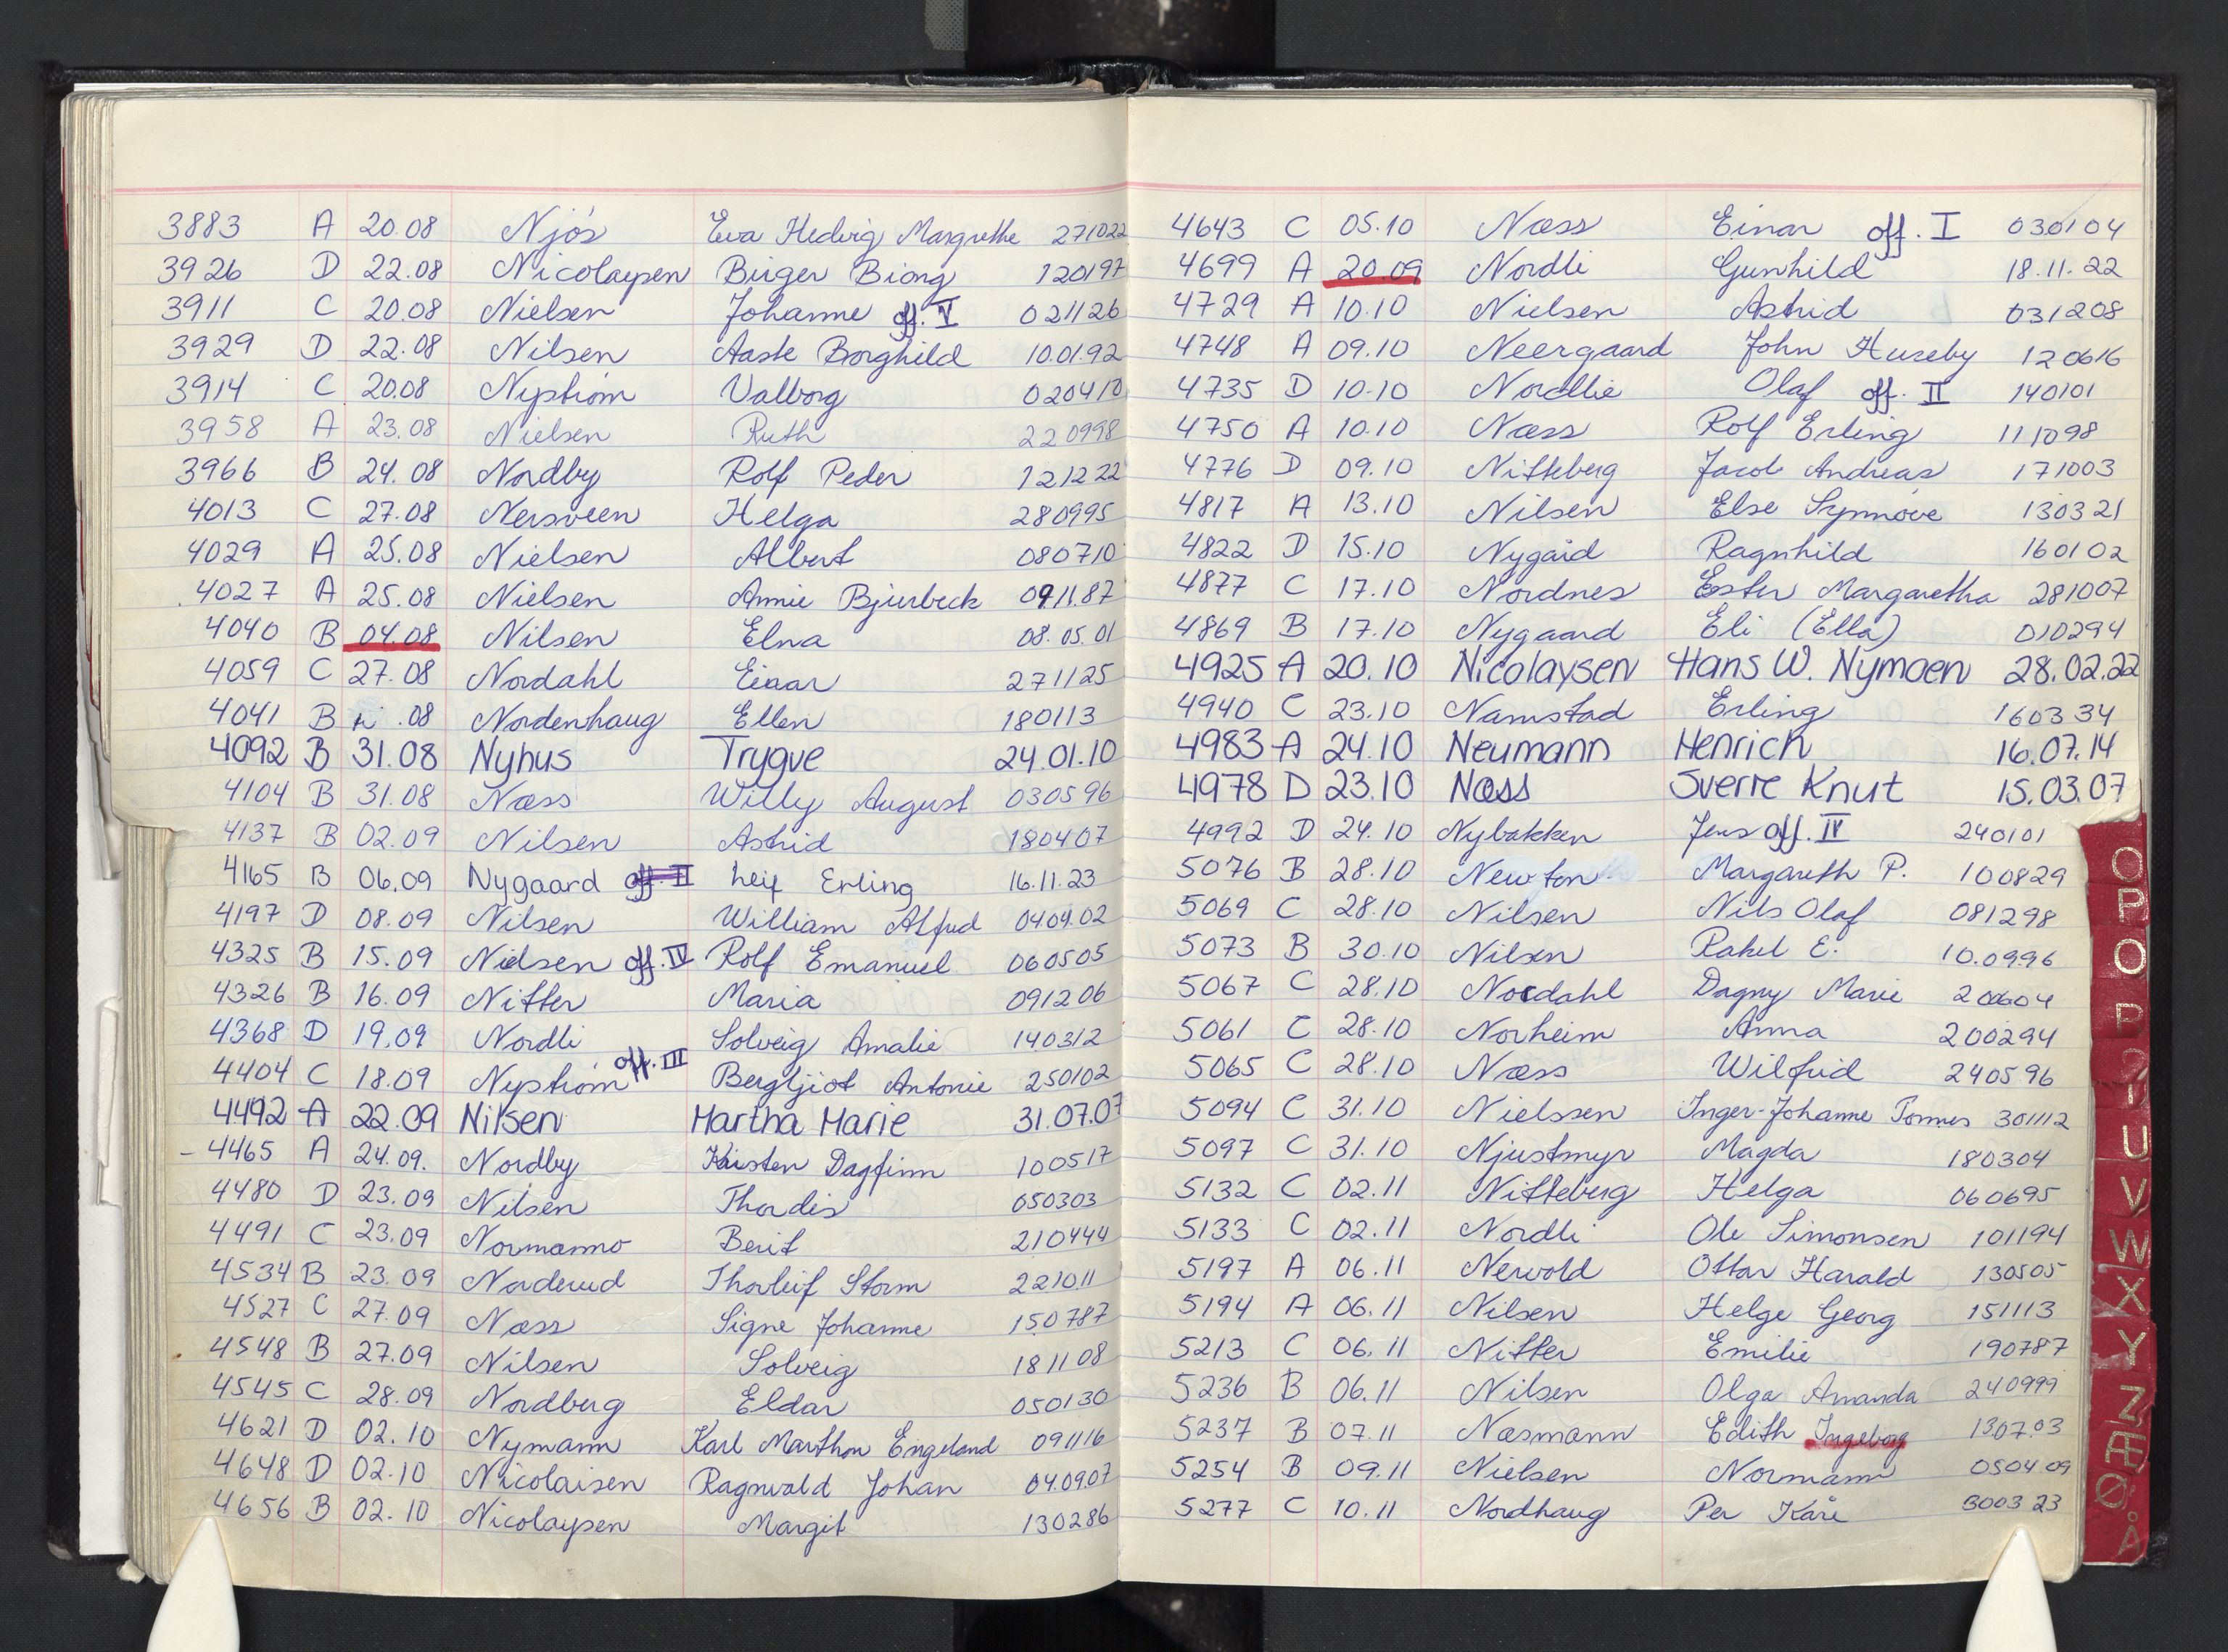 3883 A 20.08 Njøs Eva Hedvig Margrethe 271022
3926 D 22.08 Nicolaysen Birger Biong 120197
3911 C 20.08 Nielsen Johanne off. V 021126
3929 D 22.08 Nilsen Aaste Borghild 10.01.92
3914 C 20.08 Nystrøm Valborg 020410
3958 A 23.08 Nielsen Ruth 220998
3966 B 24.08 Nordby Rolf Peder 121222
4013 C 27.08 Nersveen Helga 280995
4029 A 25.08 Nielsen Albert 080710
4027 A 25.08 Nielsen Annie Bjurbeck 09.11.87
4040 B 04.08 Nilsen Elna 08.05.01
4059 C 27.08 Nordahl Einar 271125
4041 B .08 Nordenhaug Ellen 180113
4092 B 31.08 Nyhus Trygve 24.01.10
4104 B 31.08 Næss Willy August 030596
4137 B 02.09 Nilsen Astrid 180407
4165 B 06.09 Nygaard off. II Leif Erling 16.11.23
4197 D 08.09 Nilsen William Alfred 0409.02
4325 B 15.09 Nielsen off. IV Rolf Emanuel 060505
4326 B 16.09 Nitter Maria 091206
4368 D 19.09 Nordli Solveig Amalie 140312
4404 C 18.09 Nystrøm off. III Bergljot Antonie 250102
4492 A 22.09 Nilsen Martha Marie 31.07.07
4465 A 24.09. Nordby Kristen Dagfinn 100517
4480 D 23.09 Nilsen Thordis 050303
4491 C 23.09 Normanno Berit 210444
4534 B 23.09 Norderud Thorleif Storm 221011
4527 C 27.09 Næss Signe Johanne 150787
4548 B 27.09 Nilsen Solveig 181108
4545 C 28.09 Nordberg Eldar 050130
4621 D 02.10 Nymann Karl Marthon Engeland 091116
4648 D 02.10 Nicolaisen Ragnvald Johan 04.09.07
4656 B 02.10 Nicolaysen Margit 130286
4643 C 05.10 Næss Einar off. I 030104
4699 A 20.09 Nordli Gunhild 18.11.22
4729 A 10.10 Nielsen Astrid 031208
4748 A 09.10 Neergaard John Huseby 120616
4735 D 10.10 Nordlie Olaf off. II 140101
4750 A 10.10 Næss Rolf Erling 111098
4776 D 09.10 Nitteberg Jacob Andreas 171003
4817 A 13.10 Nilsen Else Synnøve 130321
4822 D 15.10 Nygård Ragnhild 160102
4877 C 17.10 Nordnes Ester Margaretha 281007
4869 B 17.10 Nygaard Eli (Ella) 010294
4925 A 20.10 Nicolaysen Hans W. Nymoen 28.02.22
4940 C 23.10 Namstad Erling 160334
4983 A 24.10 Neumann Henrich 16.07.14
4978 D 23.10 Næss Sverre Knut 15.03.07
4992 D 24.10 Nybakken Jens off. IV 240101
5076 B 28.10 Newton Margareth P. 100829
5069 C 28.10 Nilsen Nils Olaf 081298
5073 B 30.10 Nilsen Rakel E. 10.0996
5067 C 28.10 Nordahl Dagny Marie 200604
5061 C 28.10 Norheim Anna 200294
5065 C 28.10 Næss Wilfrid 240596
5094 C 31.10 Nielssen Inger-Johanne 301112
5097 C 31.10 Njustmyr Magda 180304
5132 C 02.11 Nitteberg Helga 060695
5133 C 02.11 Nordli Ole Simonsen 101194
5197 A 06.11 Nervold Ottar Harald 130505
5194 A 06.11 Nilsen Helge Georg 151113
5213 C 06.11 Nitter Emilie 190787
5236 B 06.11 Nilsen Olga Amanda 240999
5237 B 07.11 Næsmann Edith Ingeborg 1307.03
5254 B 09.11 Nielsen Normann 050409
5277 C 10.11 Nordhaug Per Kåre 300323
O
P
U
V
W
X
Y
Z
Æ
Ø
Å